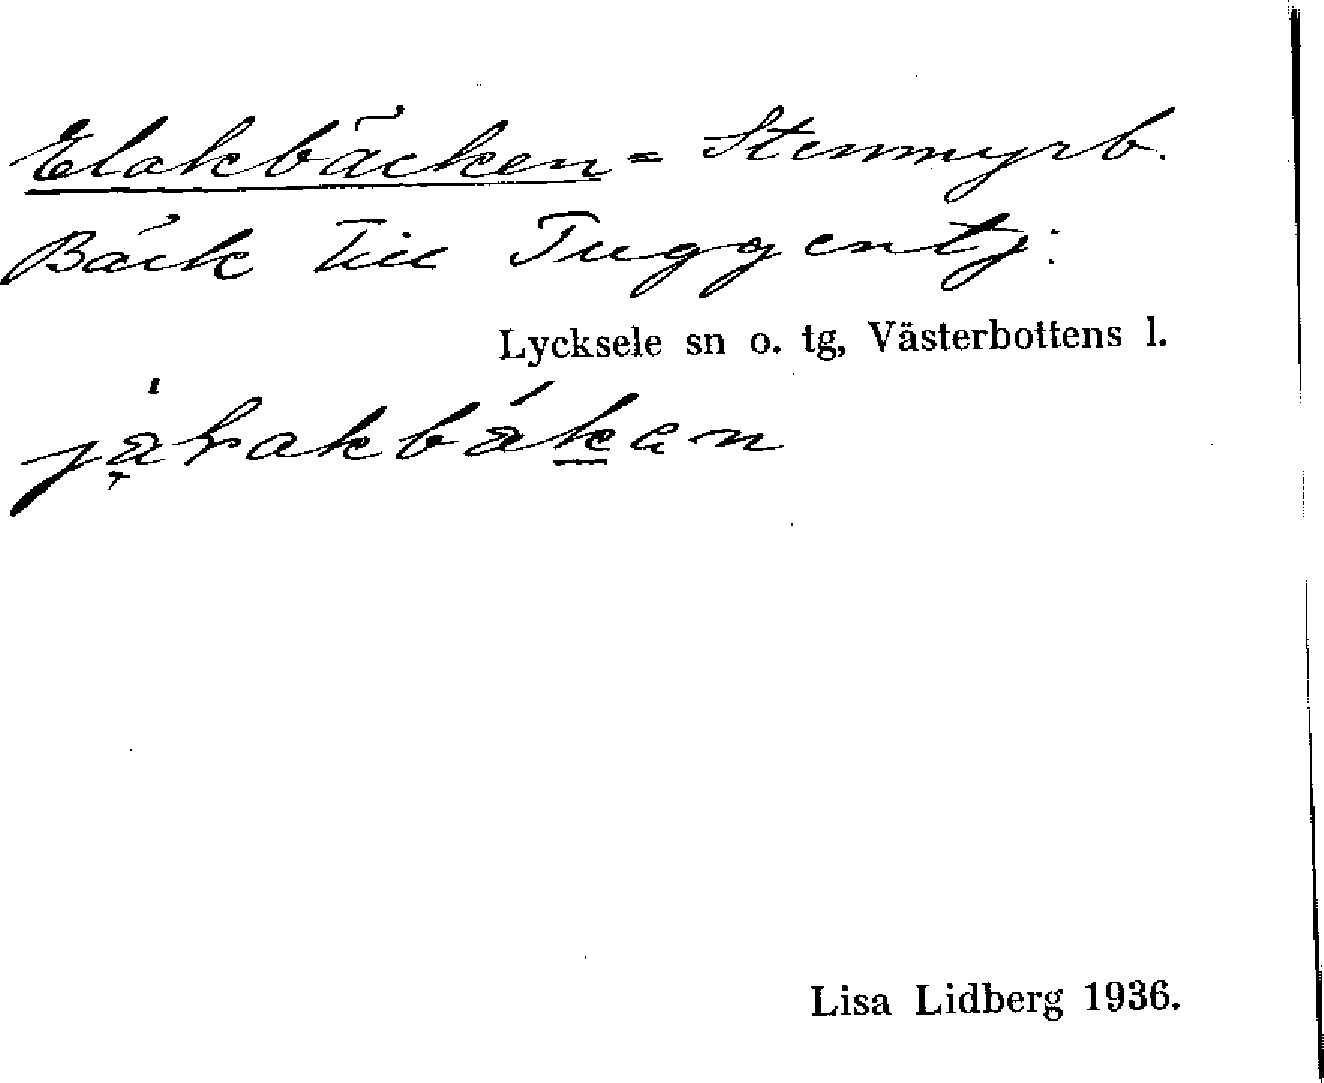 Elakbäcken = Stenmyrb.
Bäck till Tuggentj:
Lycksele sn o. tg, Västerbottens l.
Lisa Lidberg 1936.